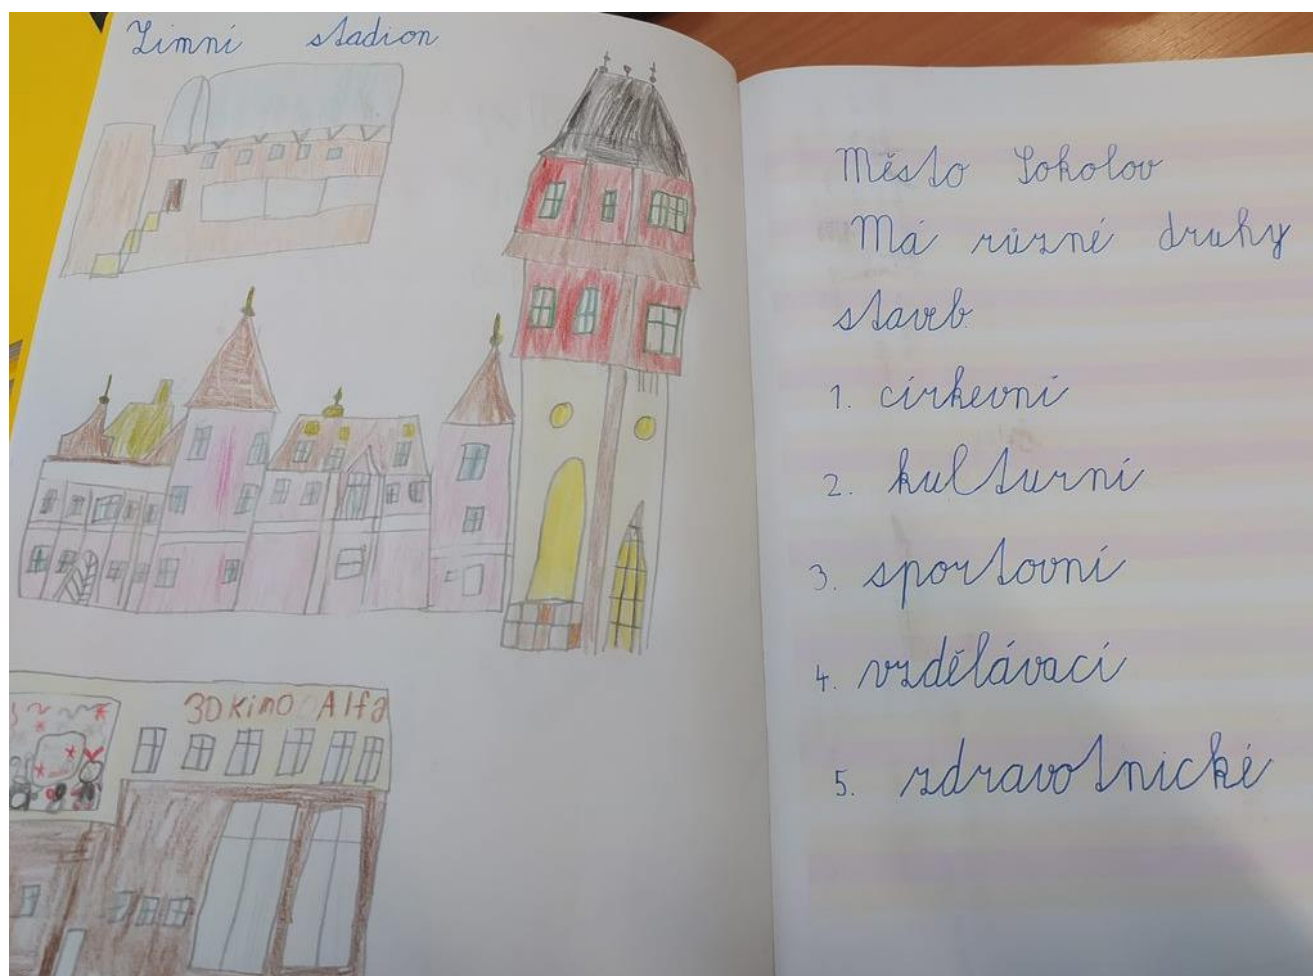 Zimní stadion
3D Kino Alfa
Město Sokolov
Má různé druhy
staveb.
1. církevní
2. kulturní
3. sportovní
4. vzdělávací
5. zdravotnické